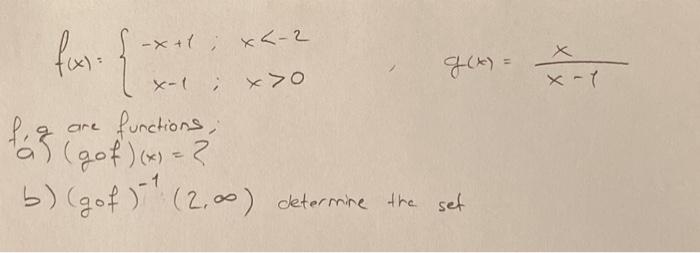 f(x) = { -x+1 ; x<-2 , g(x) = x / x-1
x-1 ; x>0
f, g are functions;
a) (gof)(x) = ?
b) (gof)⁻¹ (2,∞) determine the set